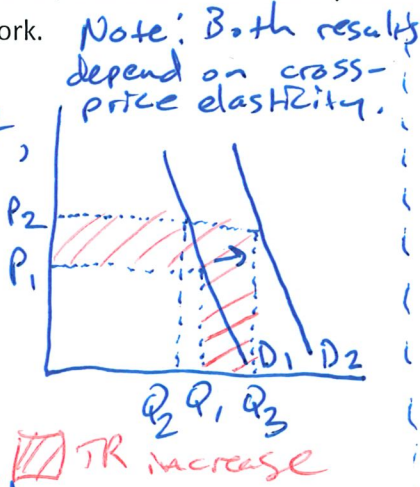 ork.
Note: Both results
depend on cross-
price elasticity.
P2
P1
D1 D2
Q2 Q1 Q3
TR increase